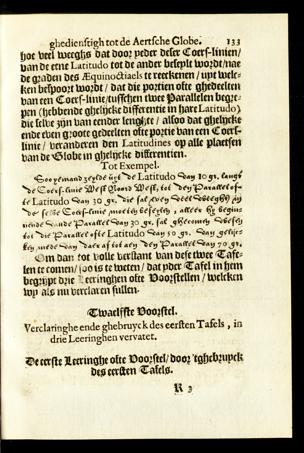 ghedienstigh tot de Aertsche Globe. 133
hoe veel weeghs dat door yeder deser Coers-linien/
van de eene Latitudo tot de ander beseylt wordt/nae
de graden des Æquinoctiaels te reeckenen / upt welc-
ken bespoort wordt / dat die portien ofte ghedeelten
van een Coers-linie/tusschen twee Parallelen begre-
pen (hebbende ghelijcke differentie in hare Latitudo)
die selve zijn van eender lenghte / alsoo dat ghelijcke
ende even groote gedeelten ofte portie van een Coers-
linie / veranderen den Latitudines op alle plaetsen
van de Globe in ghelijcke differentien.
Tot Exempel.
Soo yemand zeylde uyt de Latitudo van 10 gr. langs
de Coers-linie West Noord West, tot den Parallel of-
te Latitudo van 30 gr. die sal even veel weeghs in
de selve Coers-linie moeten beseylen, alseer hy begin-
nende vande Parallel van 30 gr. sal ghecomen wesen
tot die Parallel ofte Latitudo van 50 gr. van gelijc-
ken mede van daer af tot aen den Parallel van 70 gr.
Om dan tot volle verstant van dese twee Tafe-
len te comen/ soo is te weten / dat yder Tafel in hem
begrijpt drie Leeringhen ofte Voorstellen / welcken
wy als nu verclaren sullen.
Twaelfste Voorstel.
Verclaringhe ende ghebruyck des eersten Tafels, in
drie Leeringhen vervatet.
De eerste Leeringhe ofte Voorstel/ door 'tghebruyck
des eersten Tafels.
R 3